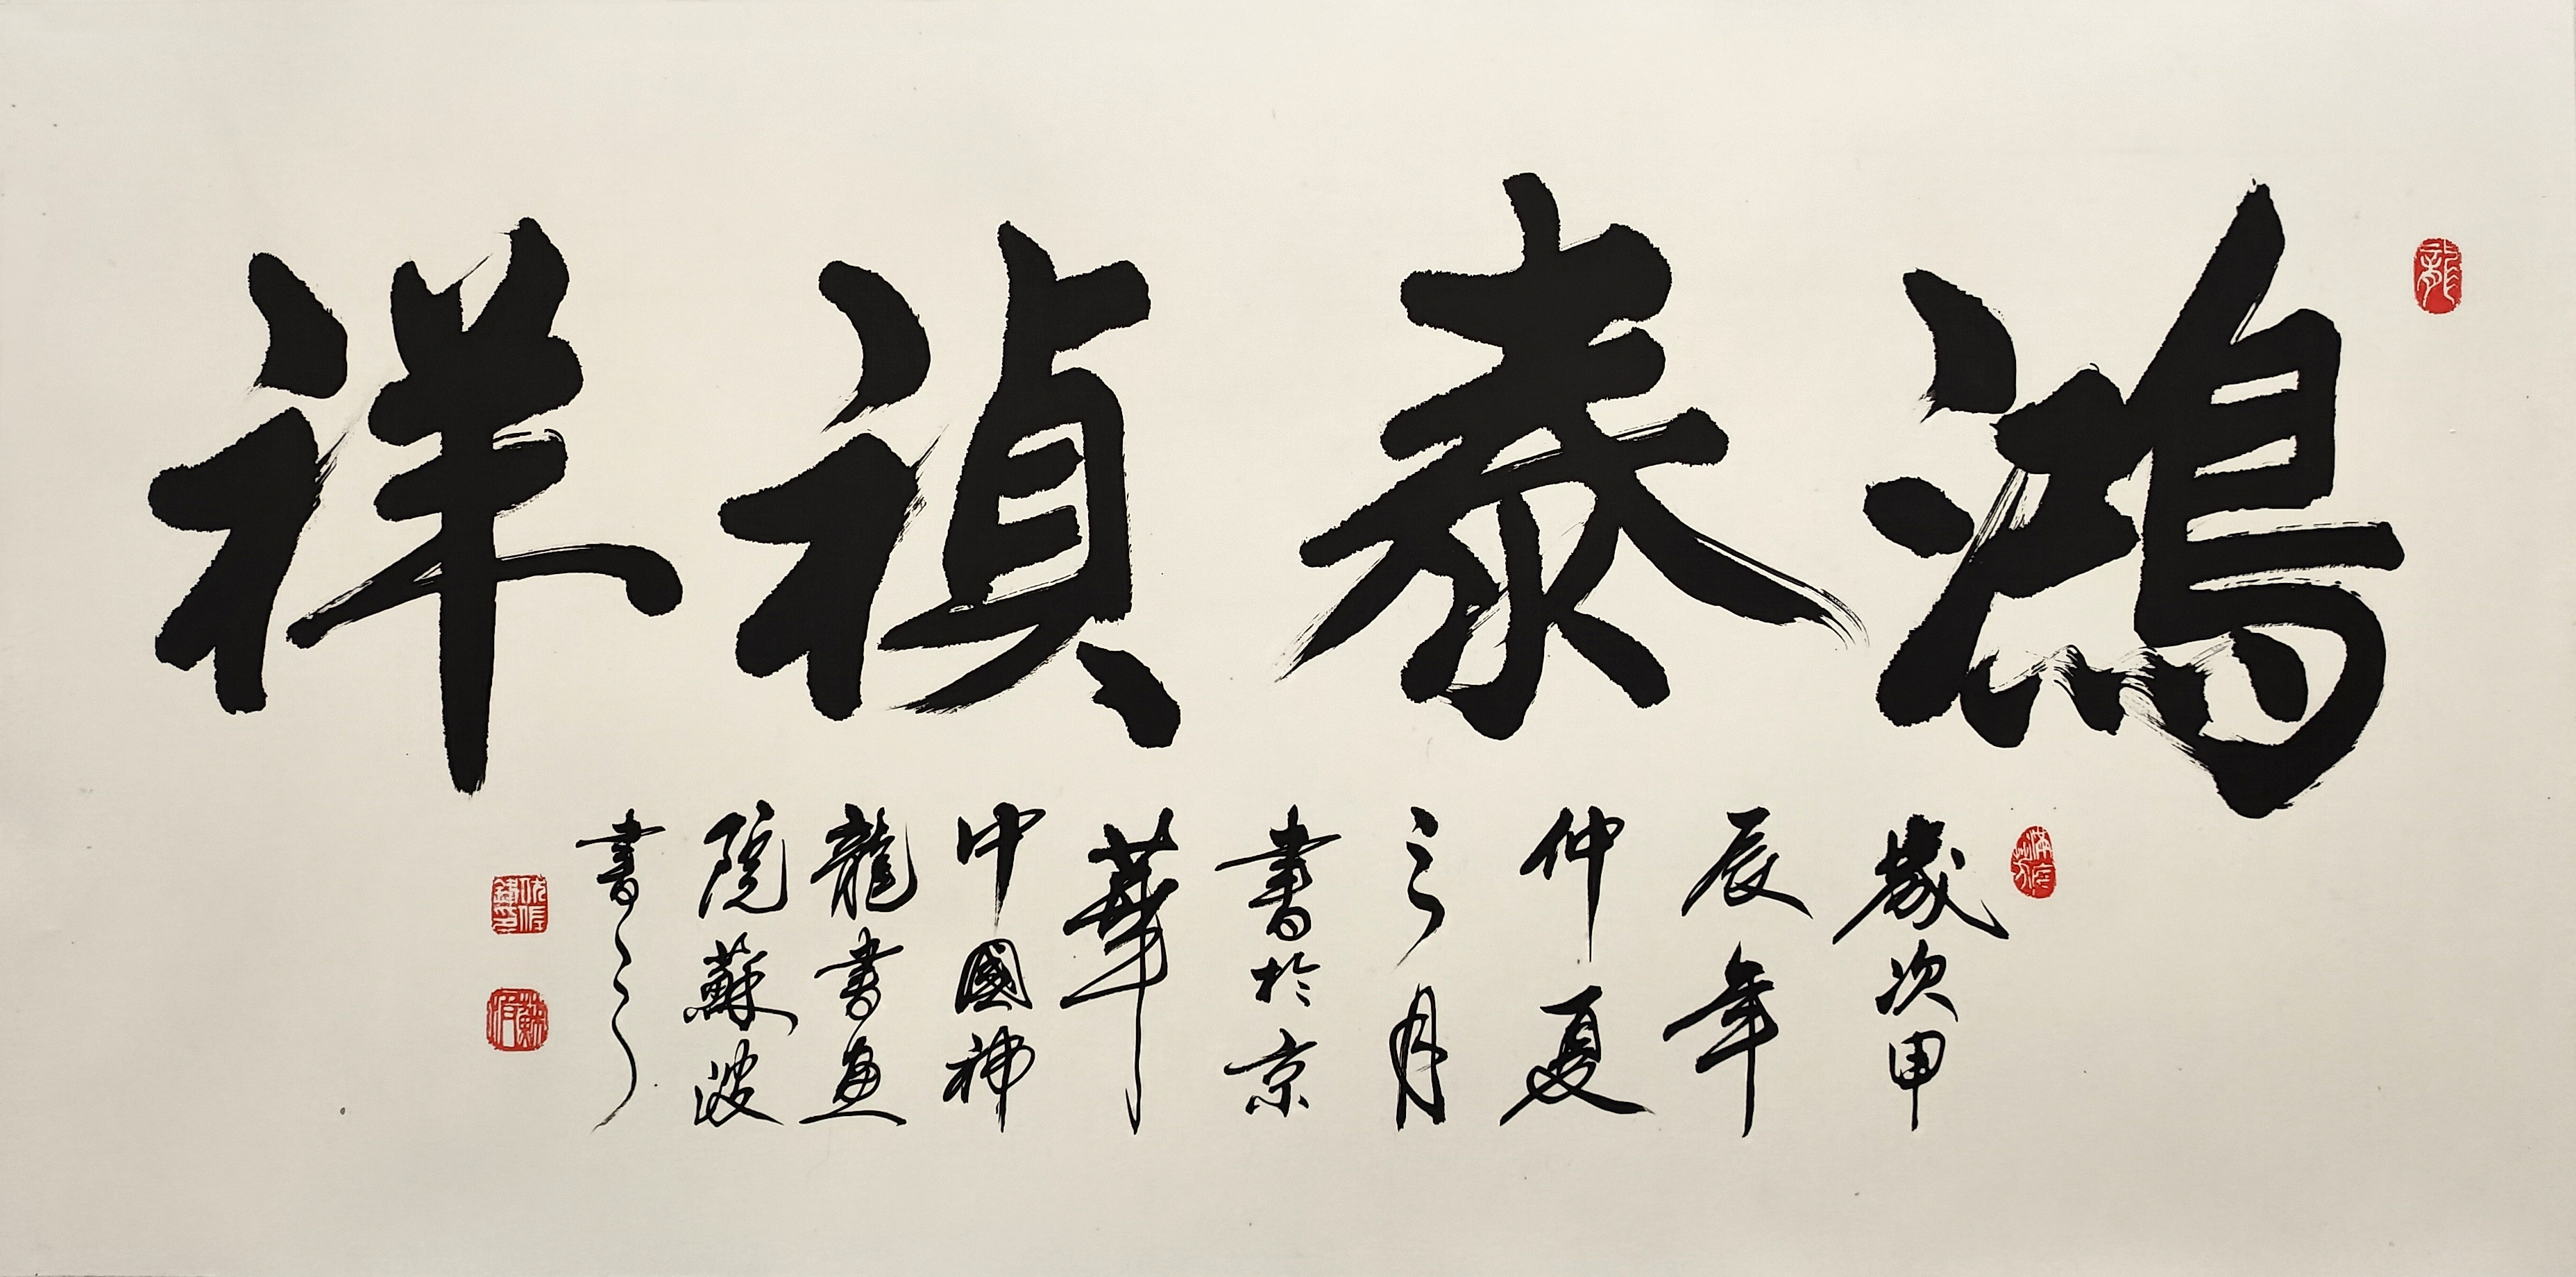 鴻泰禎祥
歲次甲
辰年
仲夏
之月
書於京
華
中國神
龍書畫
院蘇波
書
龍
蘇波